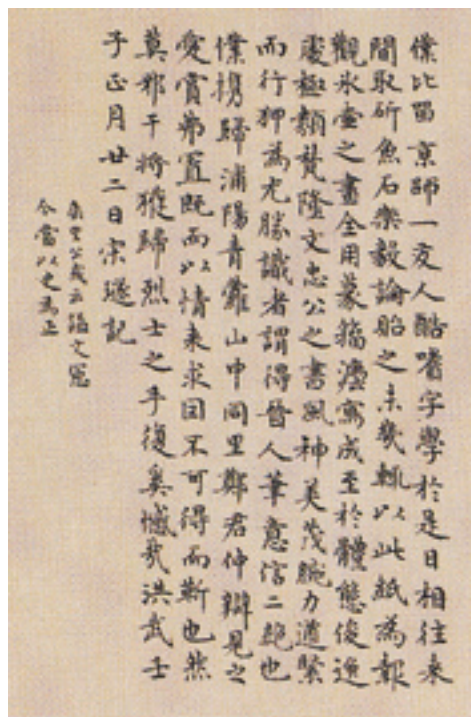 僕比留京師一友人酷嗜字學於是日相往来
間取斫魚石樂毅論貽之未幾輒以此紙為報
觀氷壺之畫全用篆籀瀍寫成至於體態俊逸
處極類梵隆文忠公之書風神美茂腕力遒緊
而行押為尤勝識者謂得晉人筆意信二絶也
僕携歸浦陽青蘿山中同里鄭君仲辯見之
愛賞弗置既而以情来求固不可得而靳也然
莫邪干將獲歸烈士之手復奚憾哉洪武壬
子正月廿二日宋璲記
公云謚文
今當以史為正